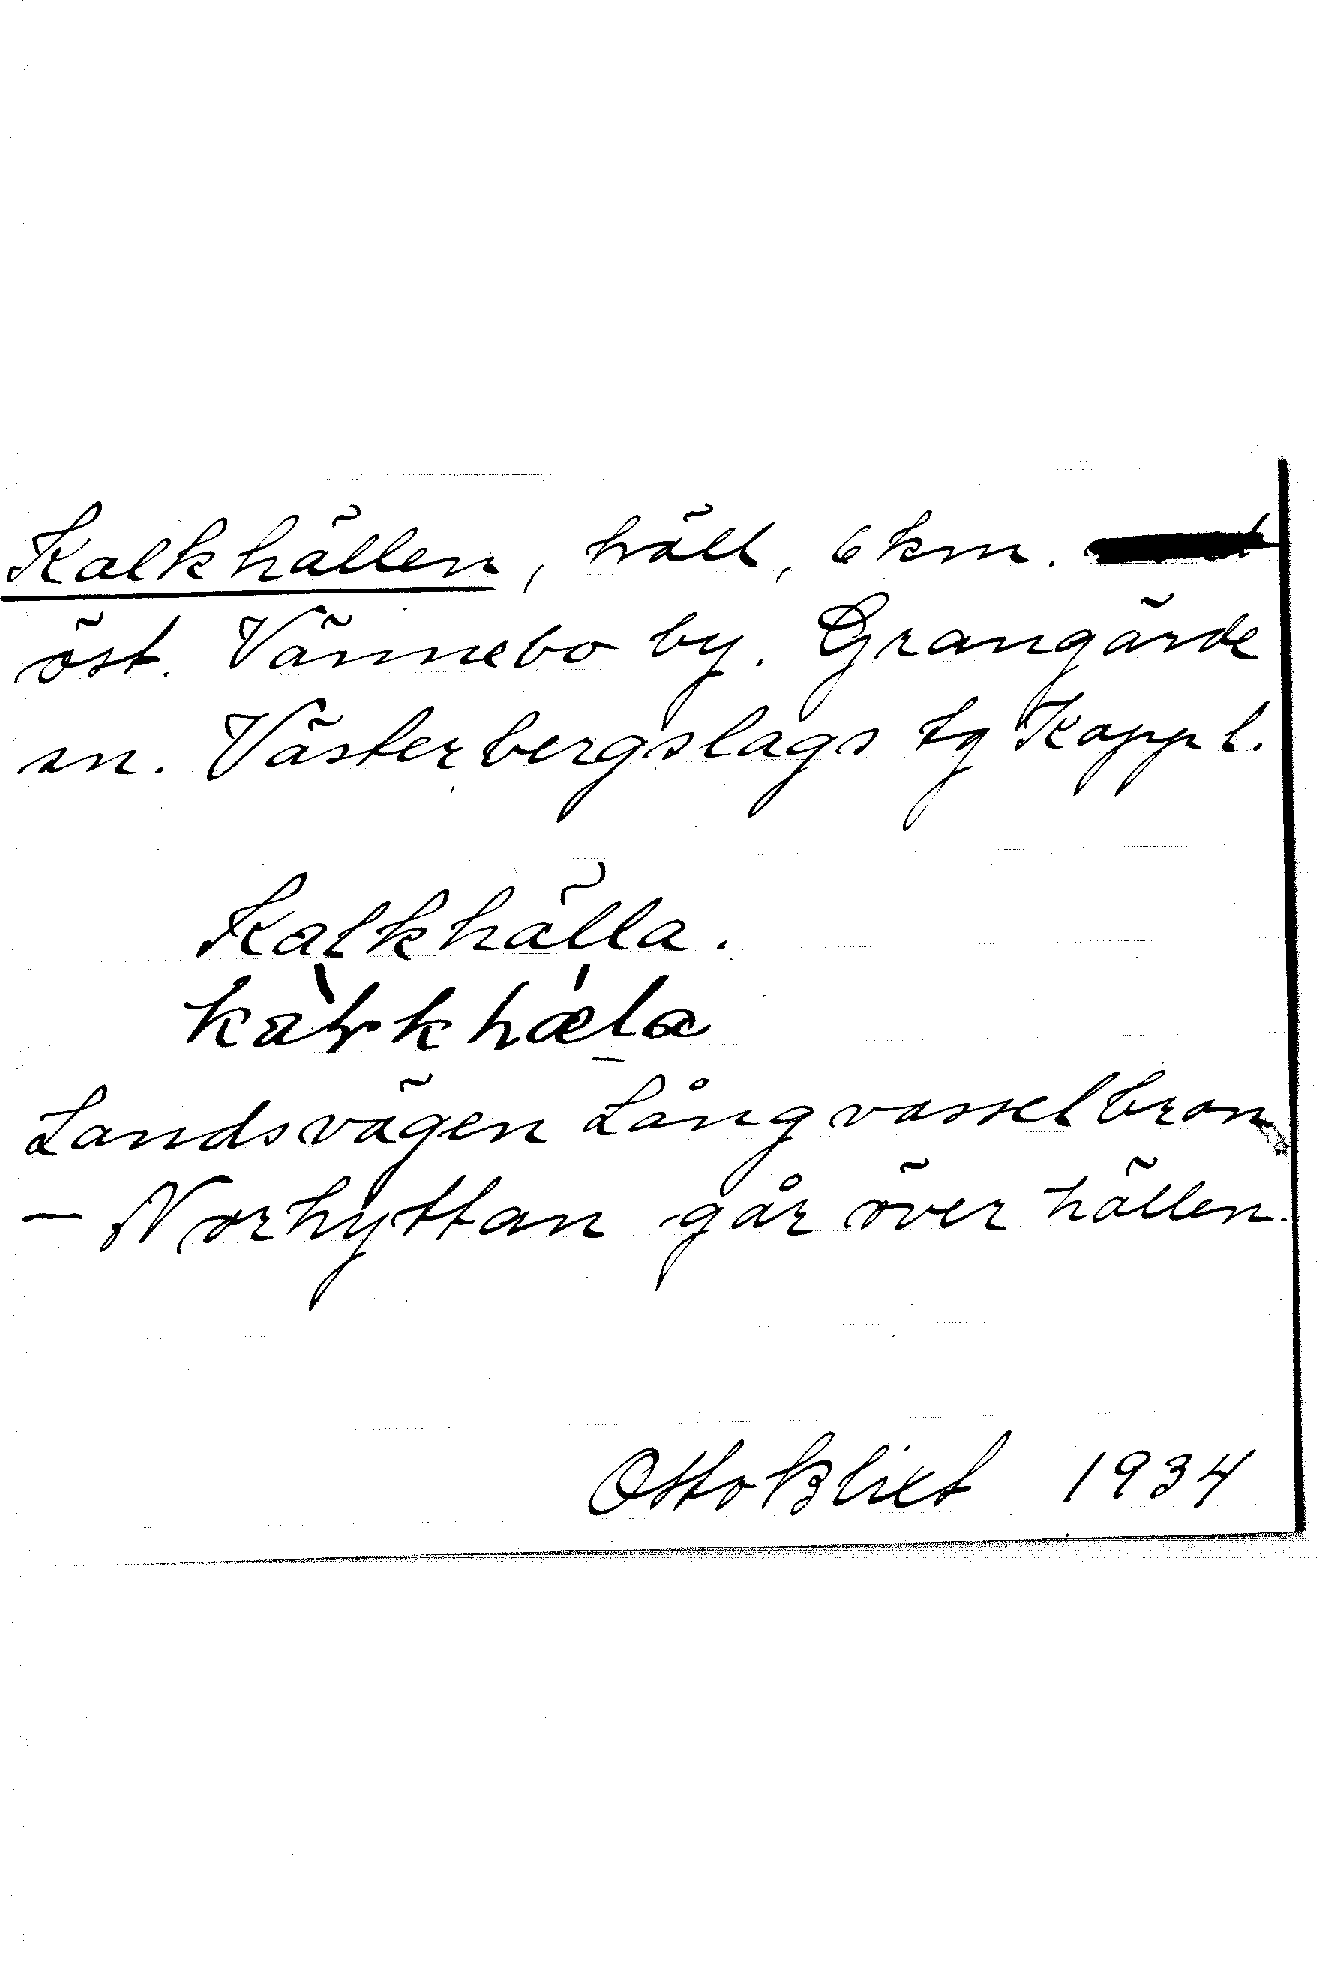 Kalkhällen, häll, 6 km.
öst. Vännebo by. Grangärde
sn. Västerbergslags tg Koppl.
Kalkhälla.
Landsvägen Långvasselbron
– Norhyttan går över hällen.
Otto Blixt 1934